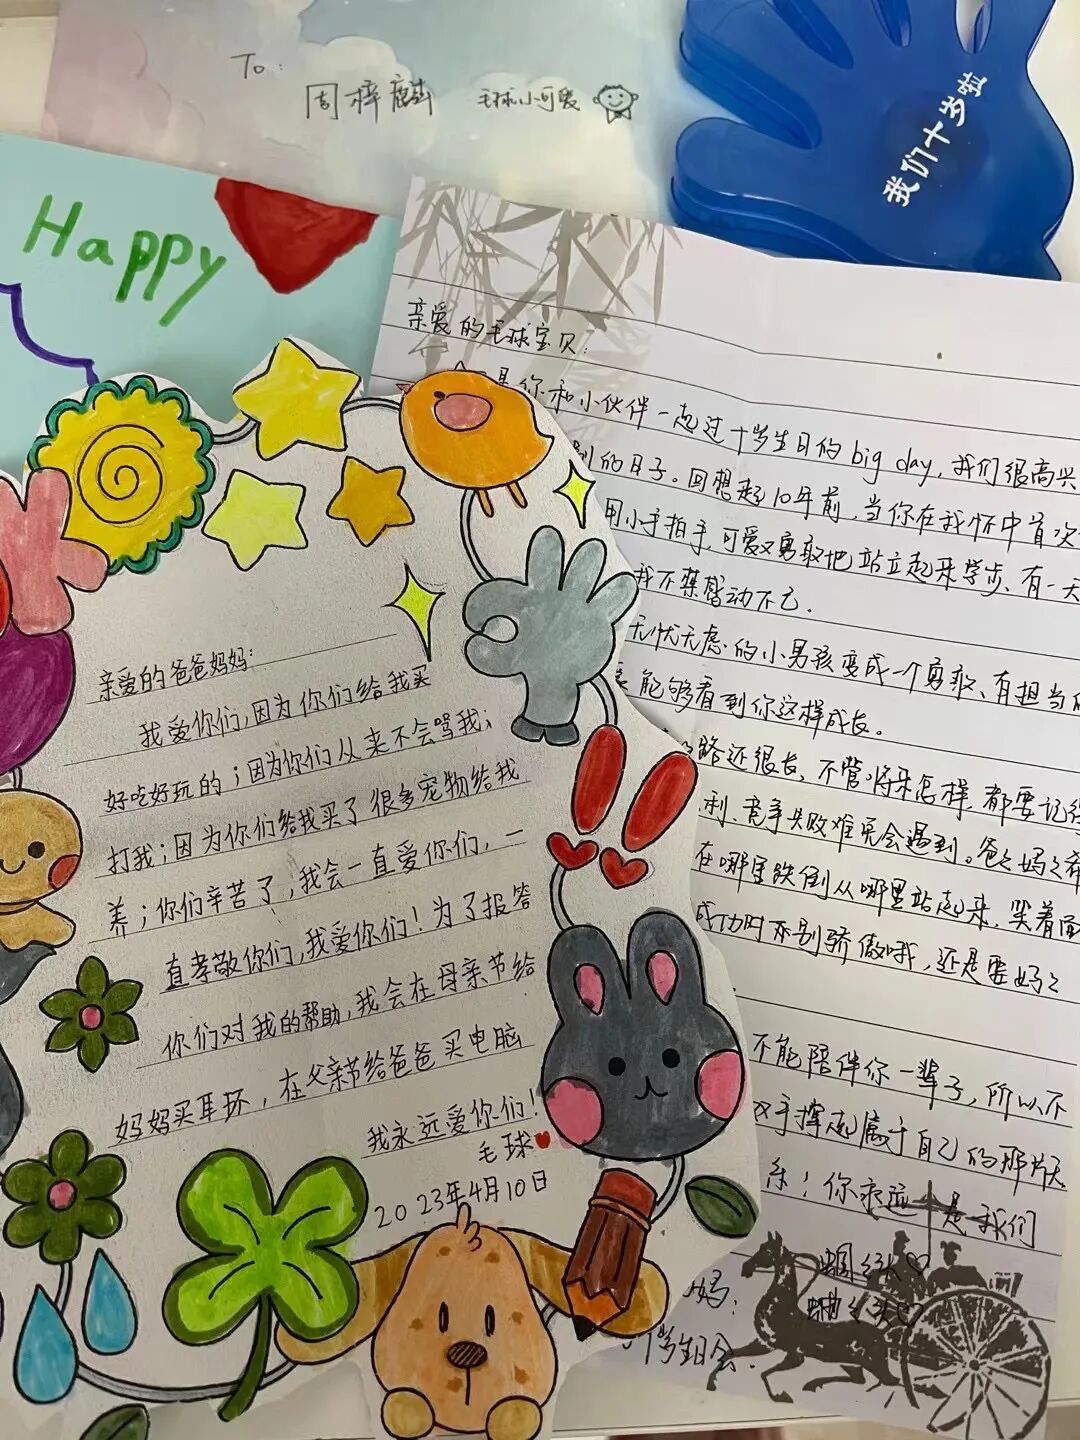 To:
周梓麟 毛球小可爱
我们十岁啦
Happy
亲爱的毛球宝贝:
是你和小伙伴一起过十岁生日的big day,我们很高兴
别的日子。回想起10年前,当你在我怀中首次
用小手拍手,可爱又勇敢地站立起来学步、有一天
我不禁感动不已.
无忧无虑的小男孩变成一个勇敢、有担当
能够看到你这样成长。
路还很长、不管将来怎样,都要记得
利、竞争失败难免会遇到。爸爸妈妈希
在哪里跌倒从哪里站起来,笑着面
成功时亦别骄傲哦,还是要妈妈
不能陪伴你一辈子,所以不
双手撑起属于自己的那片天
你永远是我们
妈:
岁生日会.
亲爱的爸爸妈妈:
我爱你们,因为你们给我买
好吃好玩的;因为你们从来不会骂我;
打我;因为你们给我买了很多宠物给我
养;你们辛苦了,我会一直爱你们,一
直孝敬你们,我爱你们!为了报答
你们对我的帮助,我会在母亲节给
妈妈买耳环,在父亲节给爸爸买电脑
我永远爱你们!
毛球
2023年4月10日